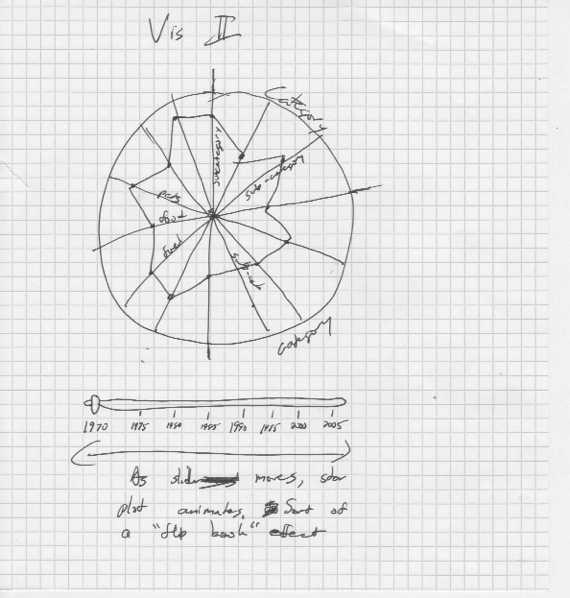 Vis II
Category
subcategory
sub-category
pets
food
fuel
sub-cat
category
1970 1975 1980 1985 1990 1995 2000 2005
As slider moves, star
plot animates. Sort of
a "flip book" effect